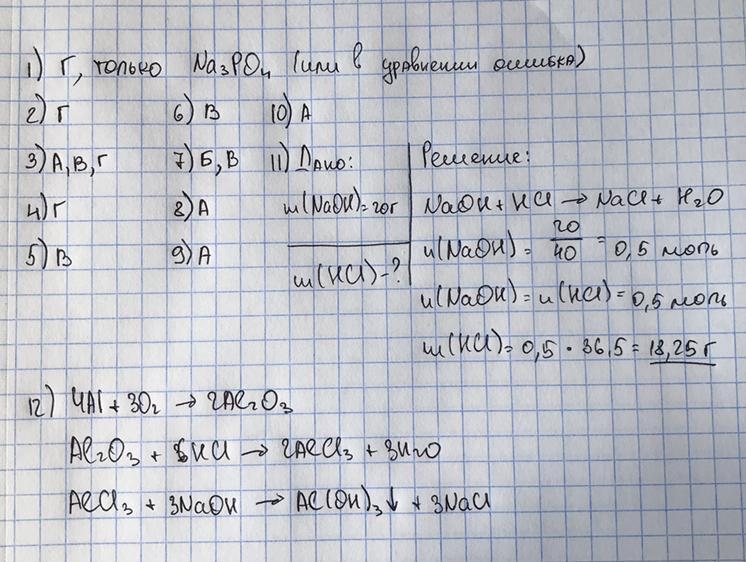 1) Г, только Na₃PO₄ (или в уравнении ошибка)
2) Г 6) В 10) А
3) А, В, Г 7) Б, В 11) Дано:
4) Г 8) А m(NaOH)=20г
5) В 9) А m(HCl)-?
Решение:
NaOH + HCl → NaCl + H₂O
n(NaOH) = 20/40 = 0,5 моль
n(NaOH) = n(HCl) = 0,5 моль
m(HCl) = 0,5 · 36,5 = 18,25 г
12) 4Al + 3O₂ → 2Al₂O₃
Al₂O₃ + 6HCl → 2AlCl₃ + 3H₂O
AlCl₃ + 3NaOH → Al(OH)₃↓ + 3NaCl